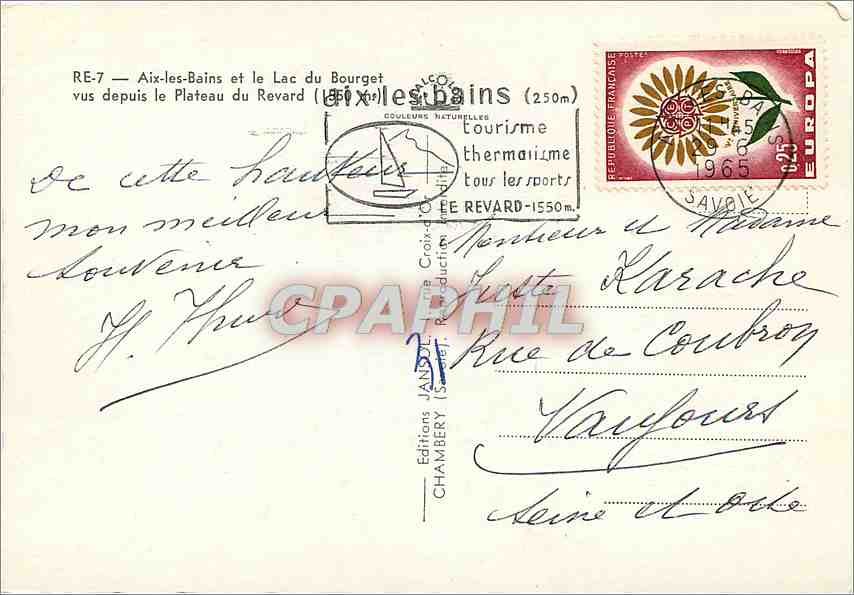 RE-7 — Aix-les-Bains et le Lac du Bourget
vus depuis le Plateau du Revard (1550 m)
COULEURS NATURELLES
aix les bains (250m)
tourisme
thermalisme
tous les sports
LE REVARD-1550m.
REPUBLIQUE FRANÇAISE
POSTES
EUROPA
0,25
ANNIVERSAIRE
AIX-LES-BAINS
1965
SAVOIE
De cette hauteur
mon meilleur
souvenir
H.
Monsieur et Madame
Juste Karache
Rue de Coubron
Vaujours
Seine et Oise
Editions JANSOL, rue Croix-d'Or
CHAMBERY (Savoie). Reproduction interdite
CPAPHIL